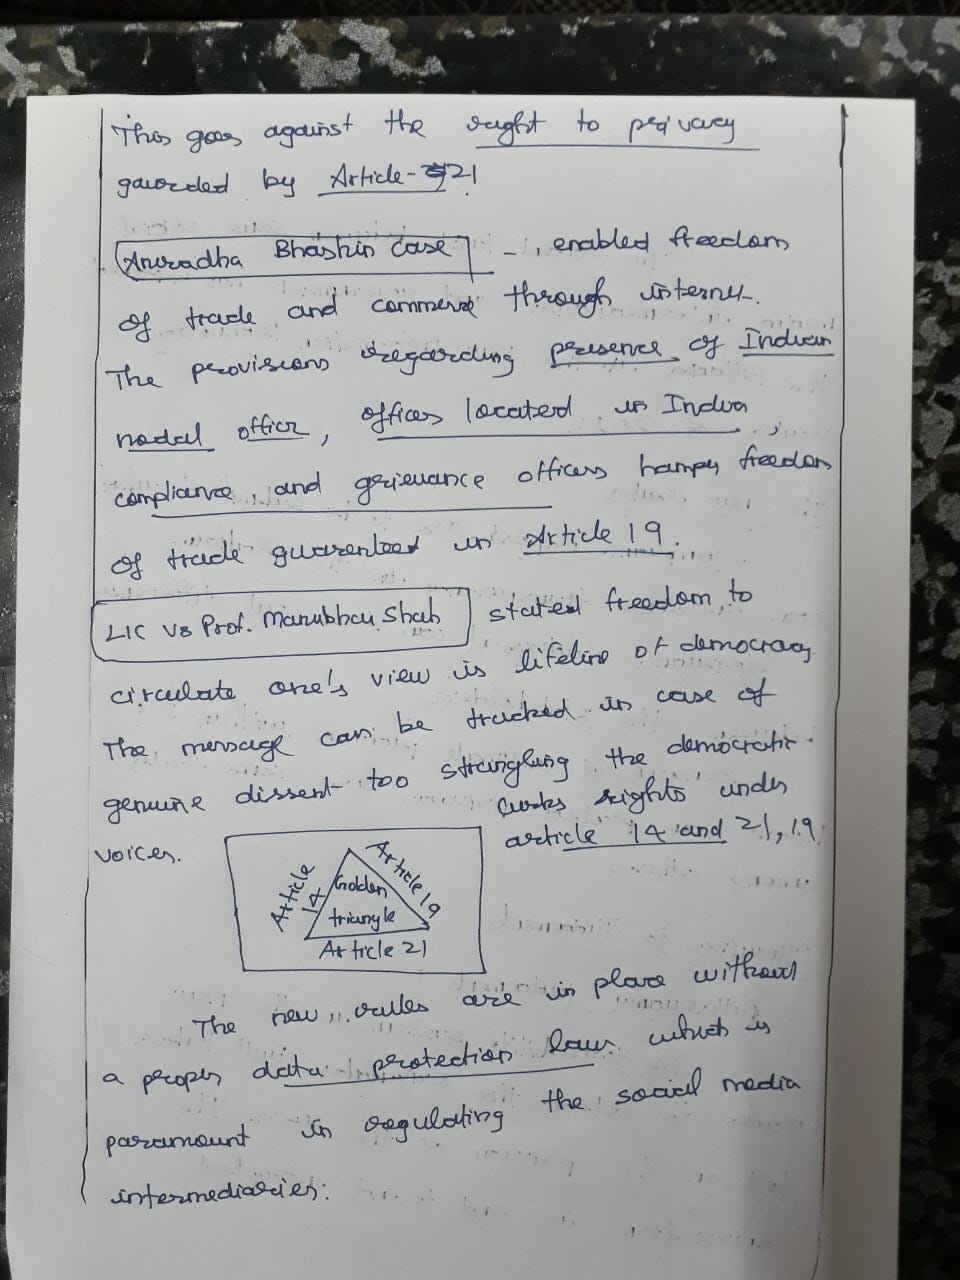 This goes against the right to privacy
gaurded by Article-21
Anuradha Bhashin case - , enabled freedom
of trade and commerce through internet.
The provisions regarding presence of Indian
nodal officer, offices located in India,
compliance and grievance officers hamper freedom
of trade guarenteed in Article 19.
LIC Vs Prof. Manubhai Shah stated freedom to
circulate one's view is lifeline of democracy.
The message can be tracked in case of
genuine dissent too strangling the democratic
voices.
curbs rights under
article 14 and 21, 19
Article 14
Article 19
Golden
triangle
Article 21
The new rules are in place without
a proper data protection law which is
paramount in regulating the social media
intermediaries.